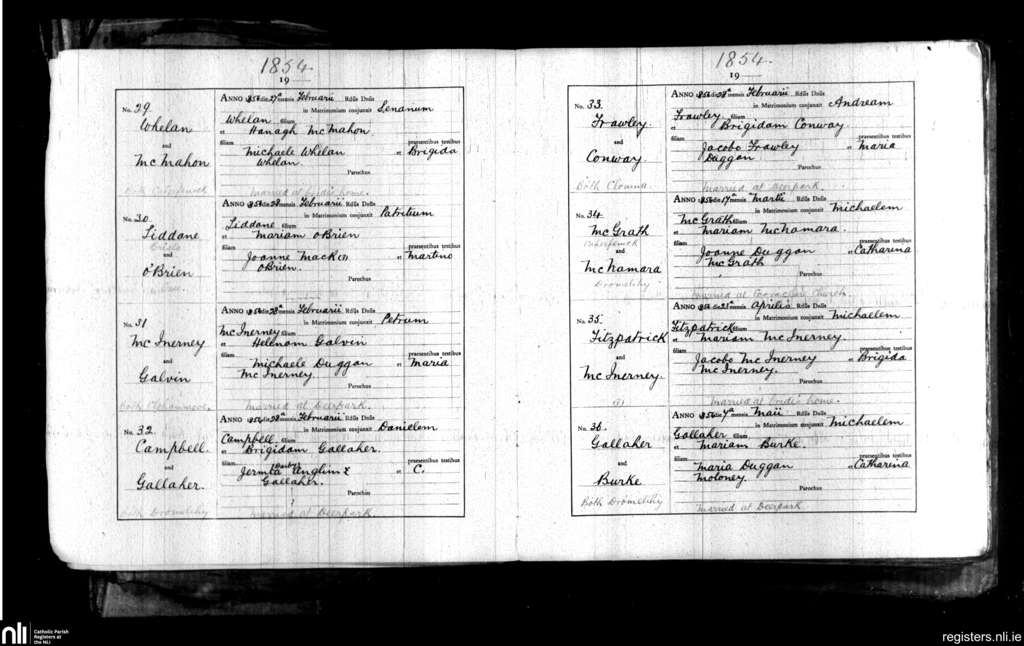 1854.
19
No. 29.
Whelan
and
McMahon
Anno 1854 die 27ª mensis Februarii Rdss Dnlls
in Matrimonium conjunxit Senanum
Whelan filium
et Hanagh McMahon
filiam praesentibus testibus
Michaele Whelan et Brigida
Whelan.
Parochus
Married at bride's home.
No. 30.
Liddane
and
O'Brien
Anno 1854 die 28 mensis Februarii Rdss Dnlls
in Matrimonium conjunxit Patritium
Liddane filium
et Mariam O'Brien
filiam praesentibus testibus
Joanne Mackey et Martino
O'Brien.
Parochus
No. 31
McInerney
and
Galvin
Anno 1854 die 28ª mensis Februarii Rdss Dnlls
in Matrimonium conjunxit Petrum
McInerney filium
et Helenam Galvin
filiam praesentibus testibus
Michaele Duggan et Maria
McInerney.
Parochus
Married at Deerpark.
No. 32.
Campbell.
and
Gallaher.
Both Dromelihy
Anno 1854 die 28ª mensis Februarii Rdss Dnlls
in Matrimonium conjunxit Danielem
Campbell. filium
et Brigidam Gallaher.
filiam praesentibus testibus
Anglim et C.
Gallaher.
Parochus
?
Married at Deerpark
1854.
19
No. 33.
Frawley.
and
Conway.
Both Clowna
Anno 1854 die 28ª mensis Februarii Rdss Dnlls
in Matrimonium conjunxit Andream
Frawley. filium
et Brigidam Conway.
filiam praesentibus testibus
Jacobo Frawley et Maria
Duggan
Parochus
Married at Deerpark.
No. 34.
McGrath
and
McNamara
Dromelihy
Anno 1854 die 17ª mensis Martii Rdss Dnlls
in Matrimonium conjunxit Michaelem
McGrath filium
et Mariam McNamara.
filiam praesentibus testibus
Joanne Duggan et Catharina
McGrath
Parochus
Married at Church.
No. 35.
Fitzpatrick
and
McInerney.
Anno 1854 die 25ª mensis Aprilis Rdss Dnlls
in Matrimonium conjunxit Michaelem
Fitzpatrick filium
et Mariam McInerney.
filiam praesentibus testibus
Jacobo McInerney et Brigida
McInerney.
Parochus
Married at bride's home.
No. 36.
Gallaher
and
Burke
Both Dromelihy
Anno 1854 die 7ª mensis Maii Rdss Dnlls
in Matrimonium conjunxit Michaelem
Gallaher filium
et Mariam Burke.
filiam praesentibus testibus
Maria Duggan et Catharina
Moloney.
Parochus
Married at Deerpark
nli
Catholic Parish
Registers at
the NLI
registers.nli.ie